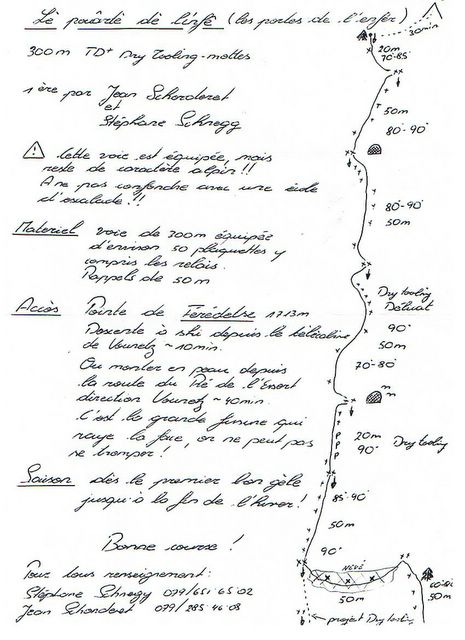 Lè pouârtè dè l'infè (les portes de l'enfer)
300m TD+ Dry Tooling-mottes
1ère par Jean Schorderet
et
Stéphane Schnegg
Cette voie est équipée, mais
reste de caractère alpin!!
A ne pas confondre avec une école
d'escalade!!
Matériel voie de 300m équipée
d'environ 50 plaquettes y
compris les relais.
Rappels de 50m
Accès Pointe de 1713m
Descente à ski depuis le
de Vounetz ~10min.
Ou monter en peau depuis
la route du Pré de l'Essert
direction Vounetz ~40min.
C'est la grande qui
raye la face, on ne peut pas
se tromper!
Saison dès le premier bon gèle
jusqu'à la fin de l'hiver!
Bonne course!
Pour tous renseignement:
Stéphane Schnegg 079/651 65 02
Jean Schorderet 079/285 46 08
30min
20m
70-85°
50m
80-90°
80-90°
50m
Dry tooling
Délicat
90°
50m
70-80°
20m Dry tooling
90°
85-90°
50m
90°
NEVÉ
50m
60-80°
50m
project Dry tooling